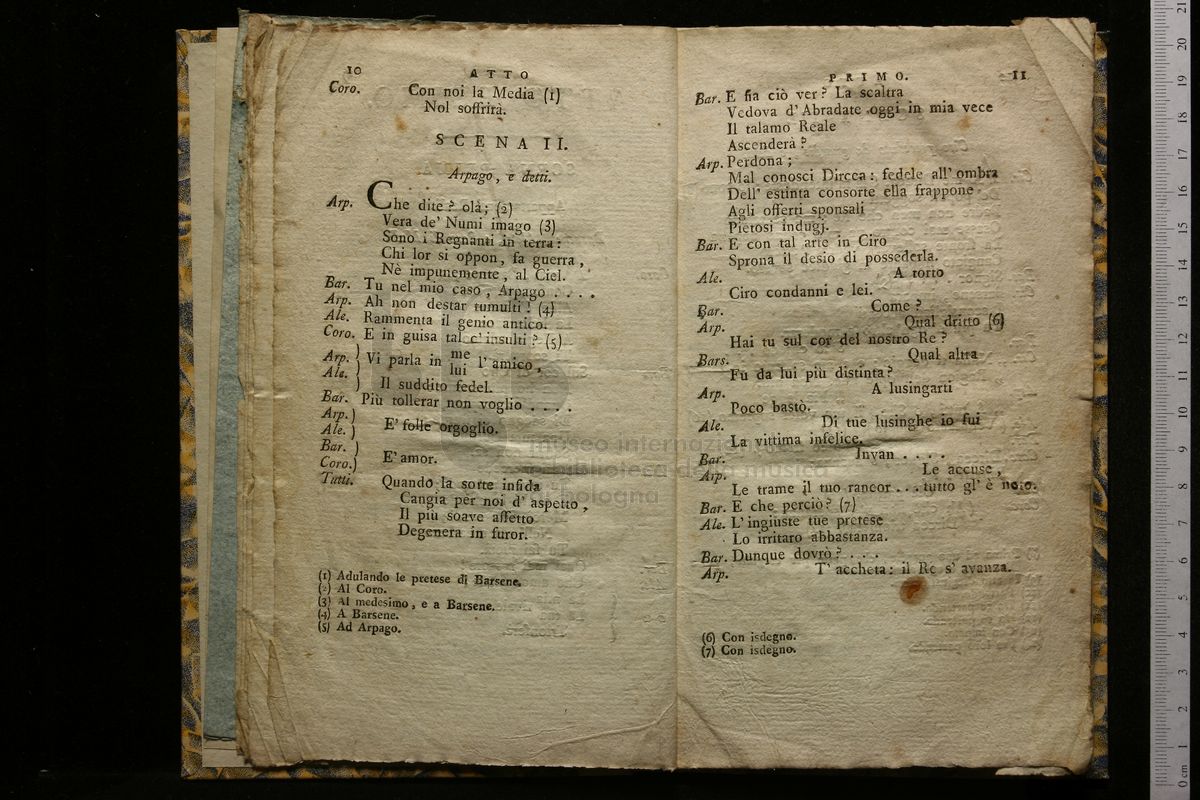 10 ATTO
Coro. Con noi la Media (1)
Nol soffrirà.
SCENA II.
Arpago, e detti.
Arp. Che dite? olà; (2)
Vera de' Numi imago (3)
Sono i Regnanti in terra:
Chi lor si oppon, fa guerra,
Nè impunemente, al Ciel.
Bar. Tu nel mio caso, Arpago . . . .
Arp. Ah non destar tumulti! (4)
Ale. Rammenta il genio antico.
Coro. E in guisa tal c'insulti? (5)
Arp. ) Vi parla in me l'amico,
Ale. ) lui
Il suddito fedel.
Bar. Più tollerar non voglio . . . .
Arp. )
Ale. ) E' folle orgoglio.
Bar. )
Coro. ) E' amor.
Tutti. Quando la sorte infida
Cangia per noi d'aspetto,
Il più soave affetto
Degenera in furor.
(1) Adulando le pretese di Barsene.
(2) Al Coro.
(3) Al medesimo, e a Barsene.
(4) A Barsene.
(5) Ad Arpago.
PRIMO. 11
Bar. E fia ciò ver? La scaltra
Vedova d'Abradate oggi in mia vece
Il talamo Reale
Ascenderà?
Arp. Perdona;
Mal conosci Dircea: fedele all'ombra
Dell'estinta consorte ella frappone
Agli offerti sponsali
Pietosi indugj.
Bar. E con tal arte in Ciro
Sprona il desio di possederla.
Ale. A torto
Ciro condanni e lei.
Bar. Come?
Arp. Qual dritto (6)
Hai tu sul cor del nostro Re?
Bars. Qual altra
Fù da lui più distinta?
Arp. A lusingarti
Poco bastò.
Ale. Di tue lusinghe io fui
La vittima infelice.
Bar. Invan . . . .
Arp. Le accuse,
Le trame il tuo rancor . . . tutto gl'è noto.
Bar. E che perciò? (7)
Ale. L'ingiuste tue pretese
Lo irritaro abbastanza.
Bar. Dunque dovrò? . . .
Arp. T'accheta: il Re s'avanza.
(6) Con isdegno.
(7) Con isdegno.
museo internazionale
e biblioteca della musica
di bologna